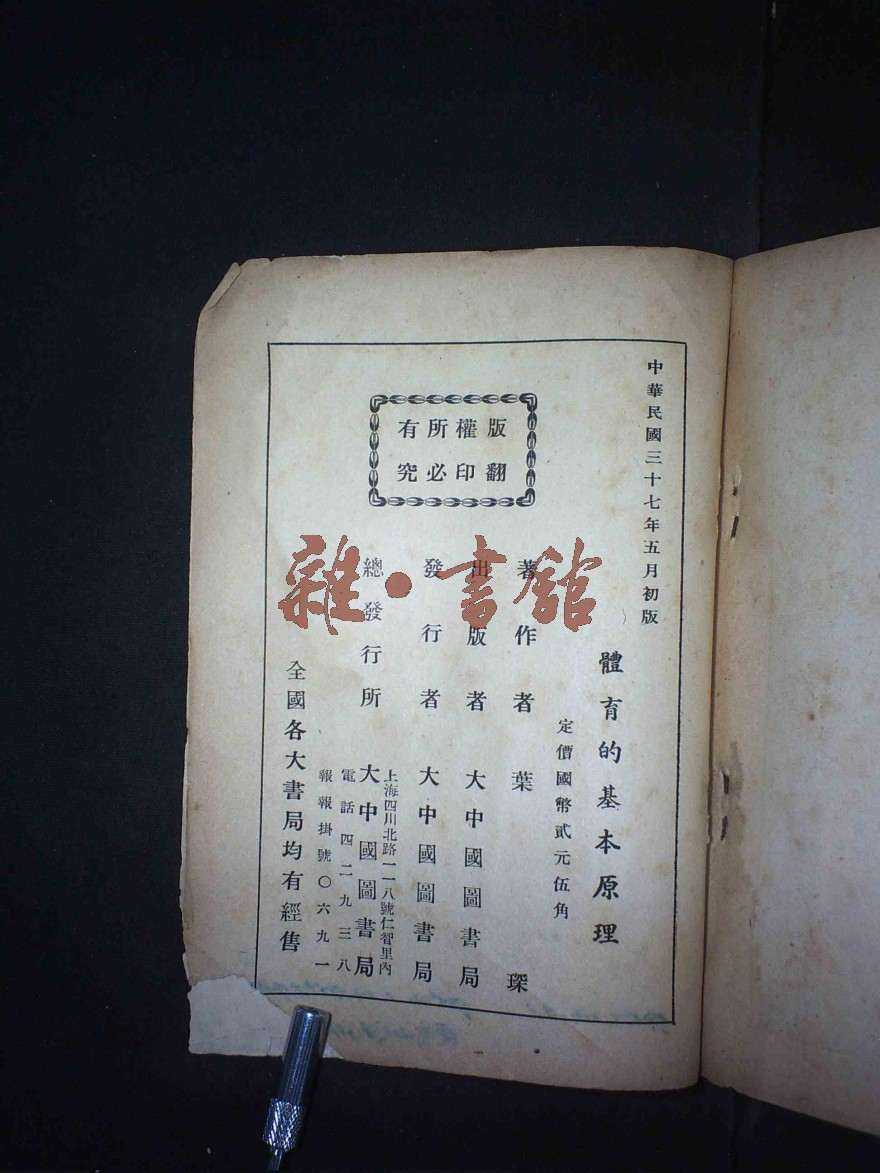 中華民國三十七年五月初版
體育的基本原理
定價國幣貳元伍角
著作者 葉琛
出版者 大中國圖書局
發行者 大中國圖書局
總發行所 大中國圖書局
上海四川北路一一八號仁智里內
電話四二九三八
報報掛號〇六九一
全國各大書局均有經售
版權所有
翻印必究
雜·書館